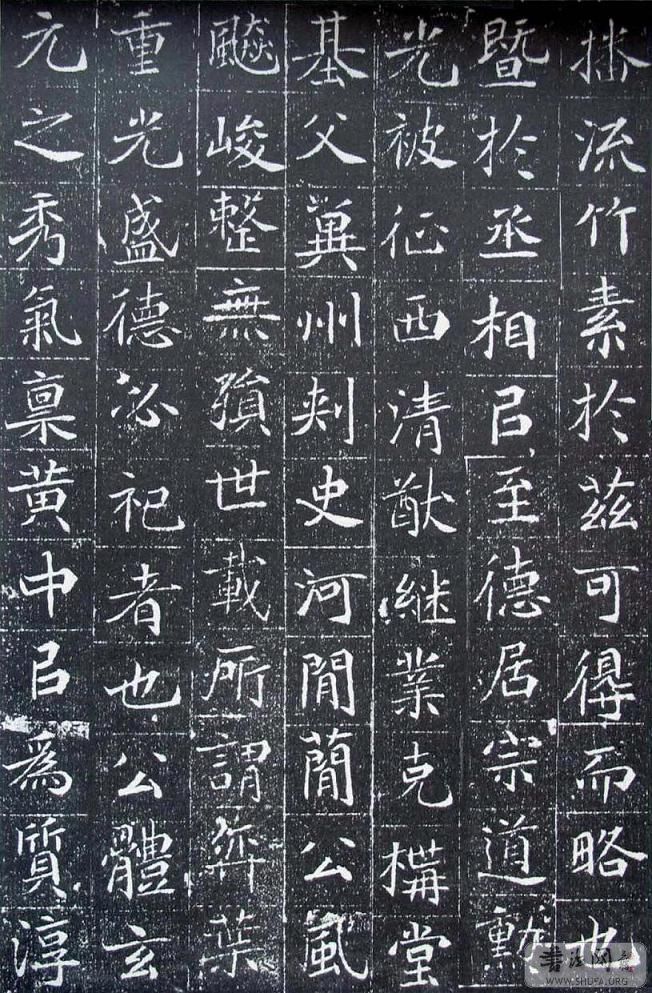 播流竹素於茲可得而略也
暨於丞相㠯至德居宗道勳
光被征西清猷継業克構堂
基父冀州刾史河間簡公風
飈峻整無殞世載所謂弈葉
重光盛德必祀者也公體玄
元之秀氣稟黃中㠯為質淳
書法网
WWW.SHUFA.ORG